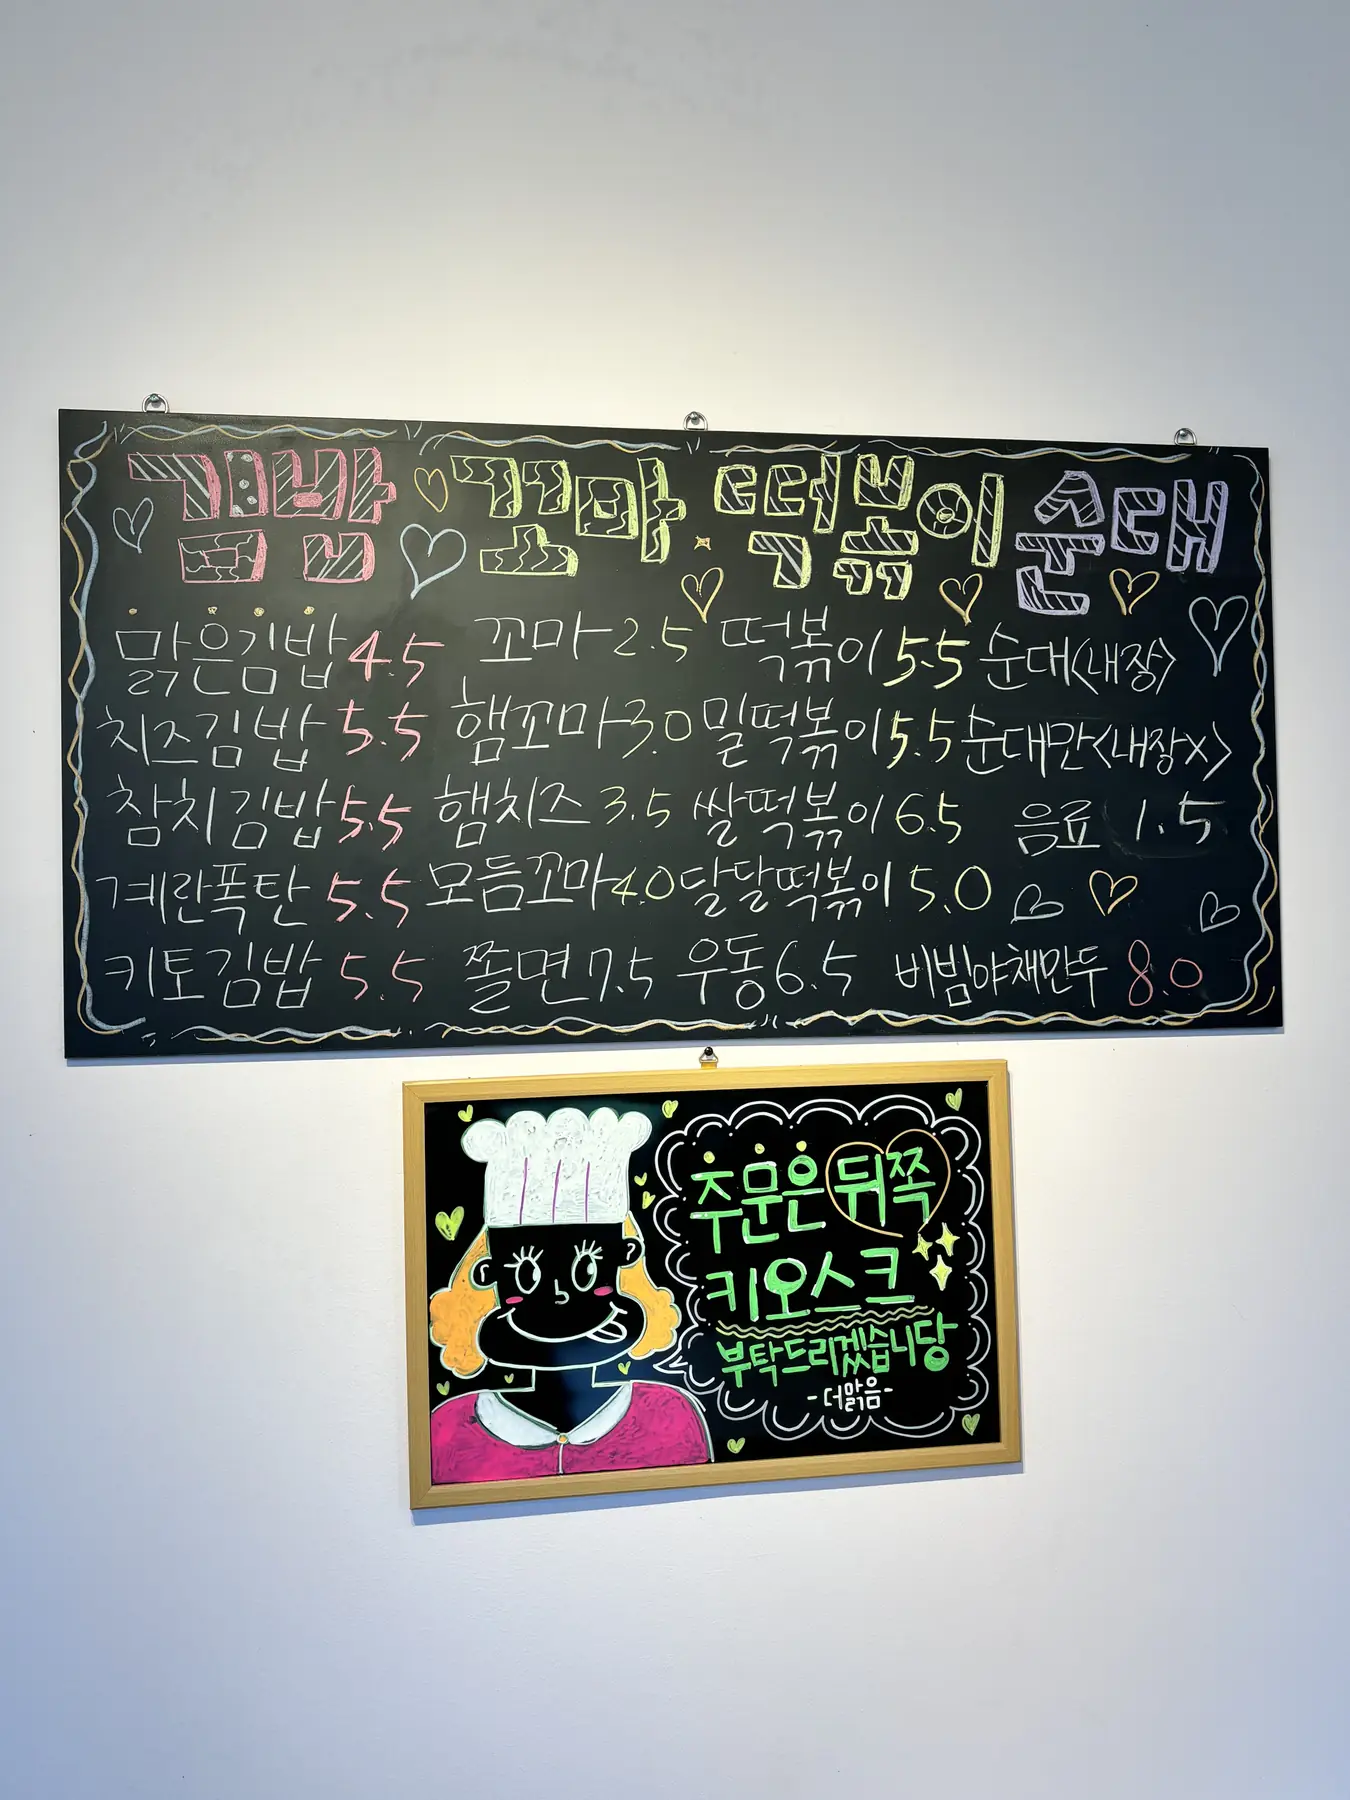 김밥 꼬마 떡볶이 순대
맑은김밥 4.5 꼬마 2.5 떡볶이 5.5 순대<내장>
치즈김밥 5.5 햄꼬마 3.0 밀떡볶이 5.5 순대만<내장x>
참치김밥 5.5 햄치즈 3.5 쌀떡볶이 6.5 음료 1.5
계란폭탄 5.5 모듬꼬마 4.0 달달떡볶이 5.0
키토김밥 5.5 쫄면 7.5 우동 6.5 비빔야채만두 8.0
주문은 뒤쪽
키오스크
부탁드리겠습니당
-더맑음-